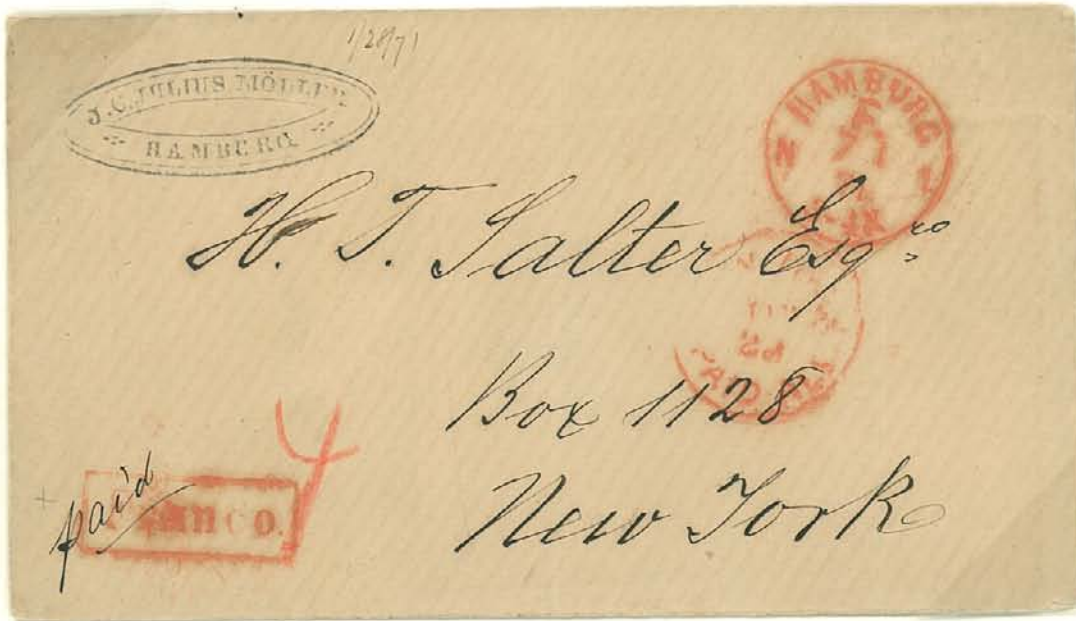 1/28/71
J. C. JULIUS MÖLLER
HAMBURG.
HAMBURG
N 1
H. T. Salter Esqre
PAID
Box 1128
New York
paid
Franco.